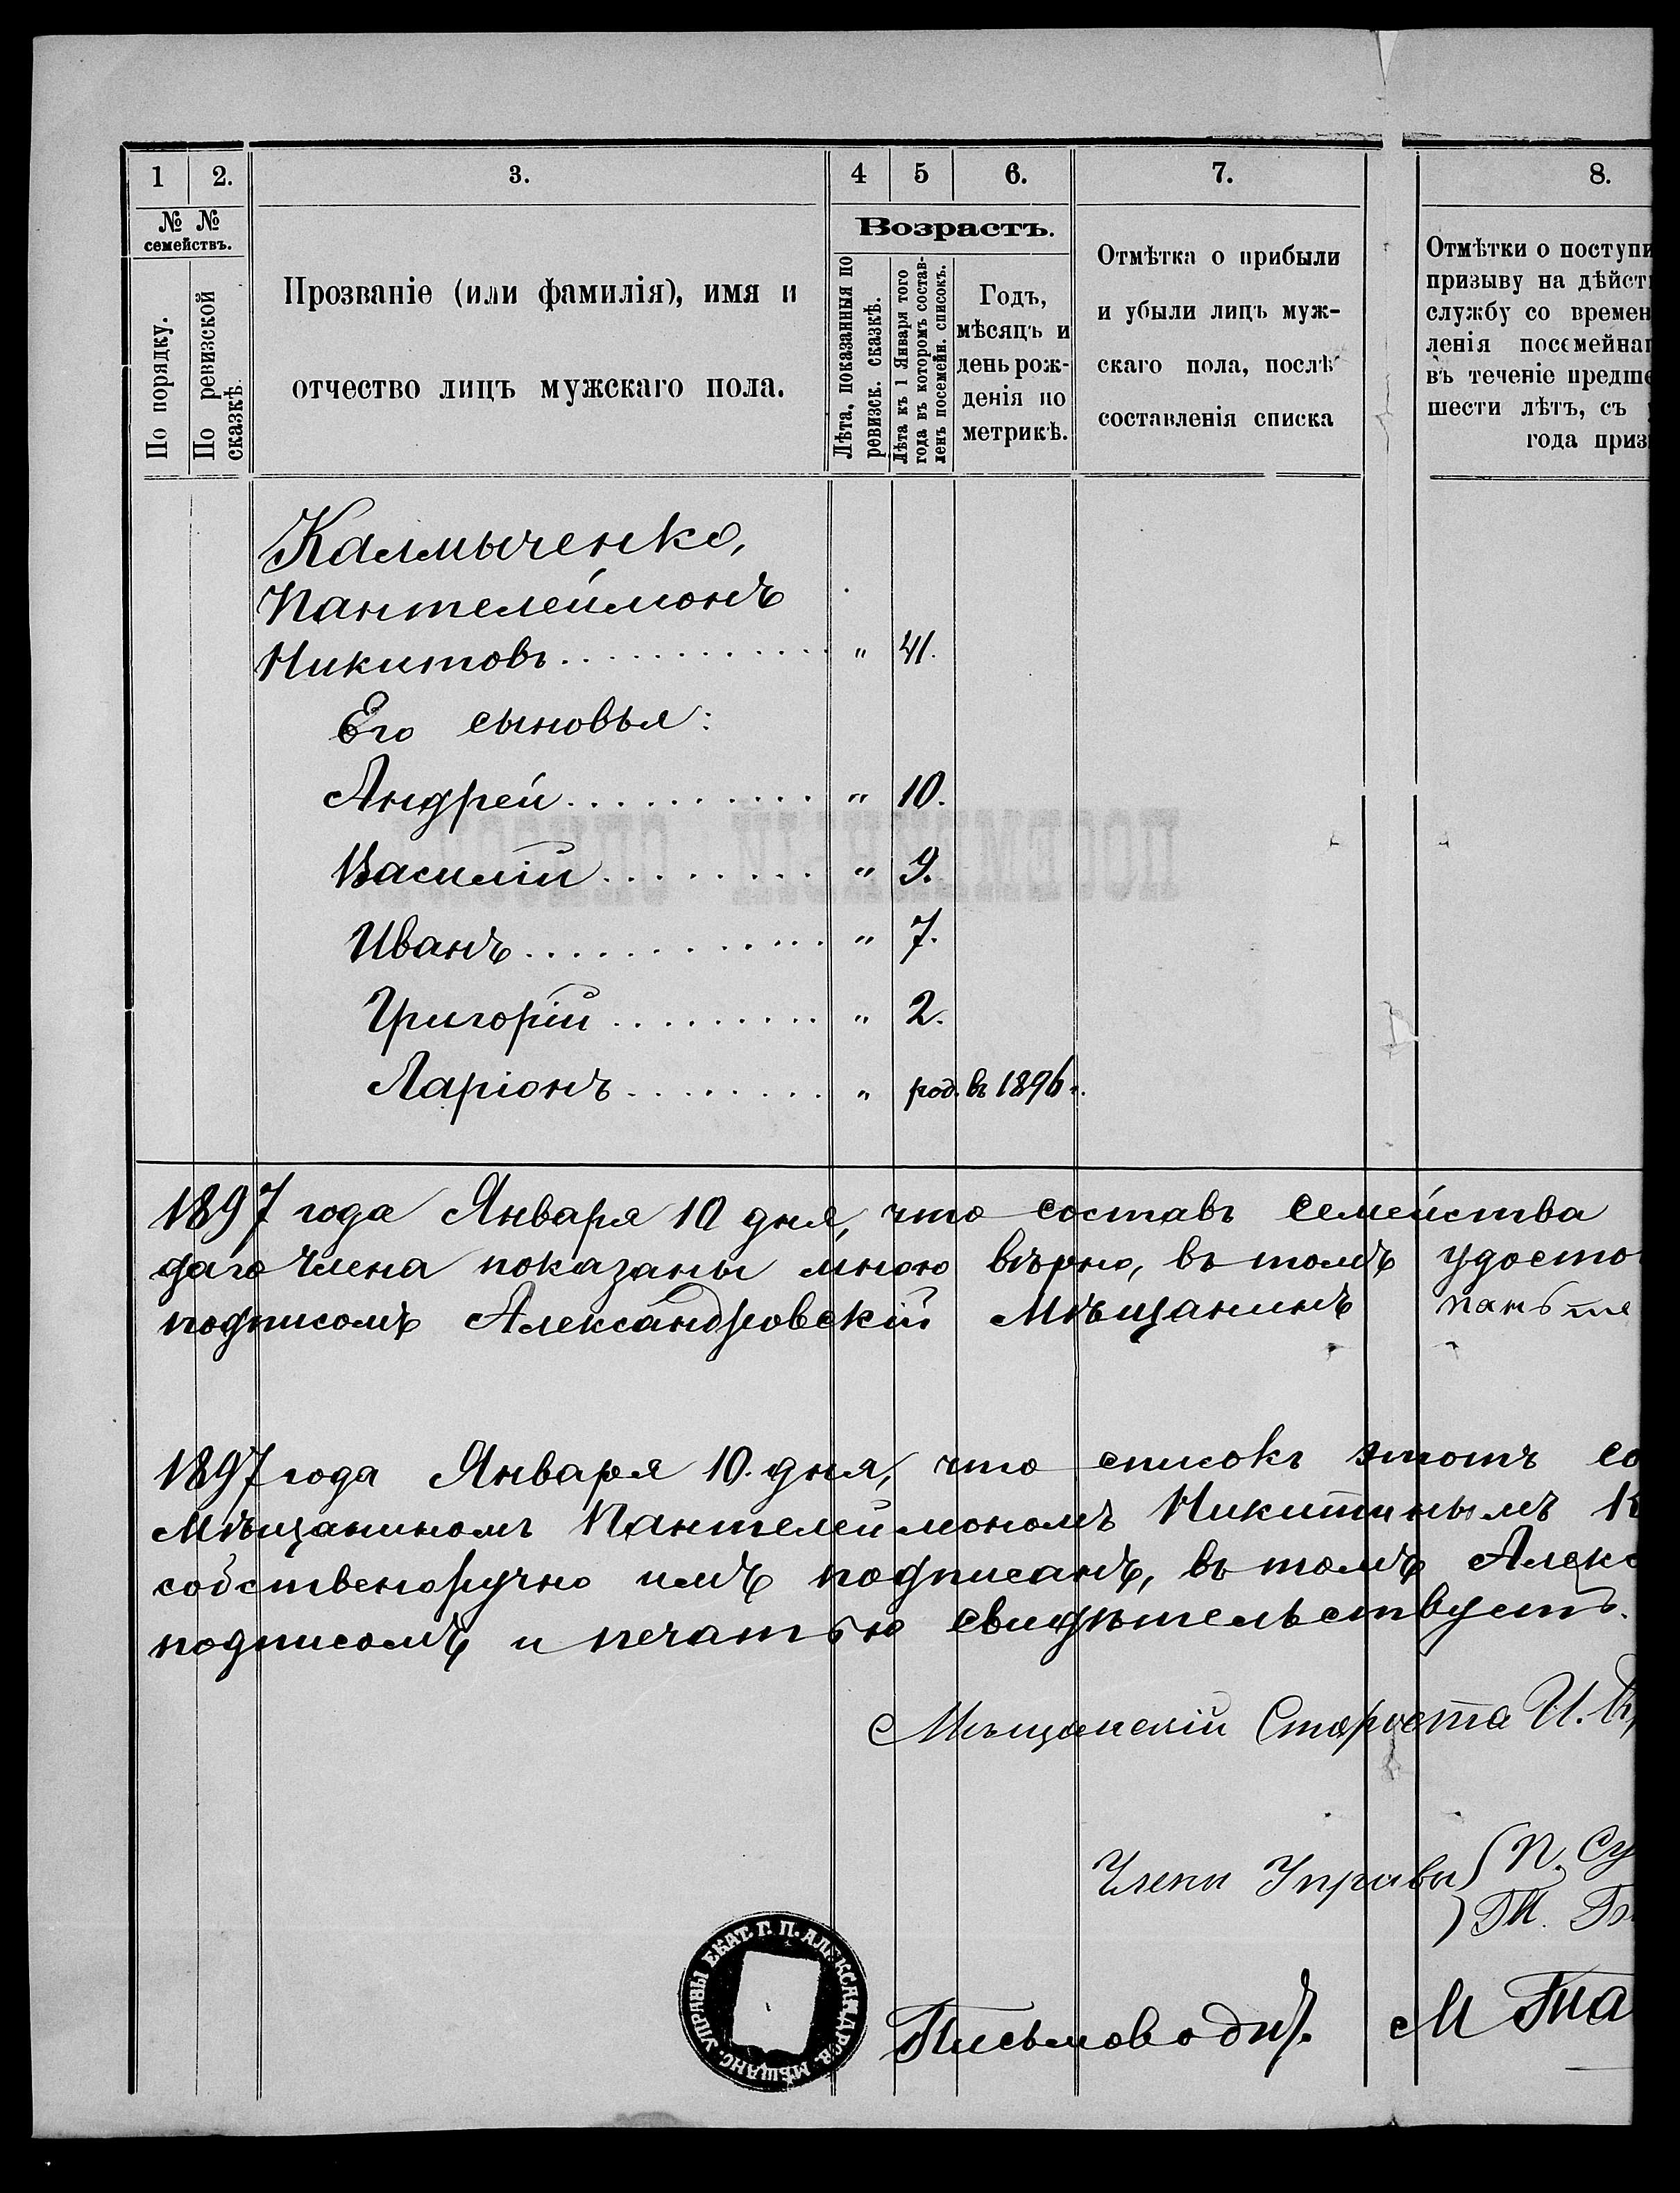 1 2. 3. 4 5 6. 7. 8.
№ №
семействъ.
По порядку.
По ревизской
сказкѣ.
Прозваніе (или фамилія), имя и
отчество лицъ мужскаго пола.
Возрастъ.
Лѣта, показанныя по
ревизск. сказкѣ.
Лѣта къ 1 Января того
года въ которомъ состав-
ленъ посемейн. списокъ.
Годъ,
мѣсяцъ и
день рож-
денія по
метрикѣ.
Отмѣтка о прибыли
и убыли лицъ муж-
скаго пола, послѣ
составленія списка
Отмѣтки о поступи
призыву на дѣйст
службу со времен
ленія посемейнаг
въ теченіе предше
шести лѣтъ, съ
года приз
Калмыченко,
Пантелеймонъ
Никитовъ. . . . . . . . . . . . . „ 41.
Его сыновья:
Андрей. . . . . . . . . . . „ 10.
Василій. . . . . . . . . „ 9.
Иванъ. . . . . . . . . . . . „ 7.
Григорій . . . . . . . . . „ 2.
Ларіонъ. . . . . . . . . „ род. въ 1896г.
1897 года Января 10 дня, что составъ семейства
даго члена показаны мною вѣрно, въ томъ удосто
подписомъ Александровскій Мѣщанинъ паньте
1897 года Января 10. дня, что списокъ этотъ со
Мѣщаниномъ Пантелеймономъ Никитинымъ К
собственоручно имъ подписанъ, въ томъ Алекс
подписомъ и печатью свидѣтельствуетъ.
Мѣщанскій Староста И.
Члены Управы { П. Су
М. Б
ЕКАТ. Г. П. АЛЕКСАНДРОВ. МѢЩАНС. УПРАВЫ
Письмоводит. М